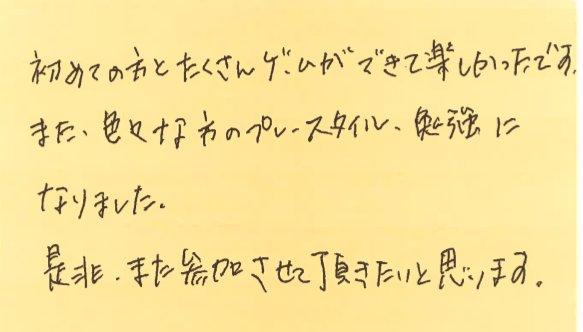 初めての方とたくさんゲームができて楽しかったです。
また、色々な方のプレースタイル、勉強に
なりました。
是非、また参加させて頂きたいと思います。